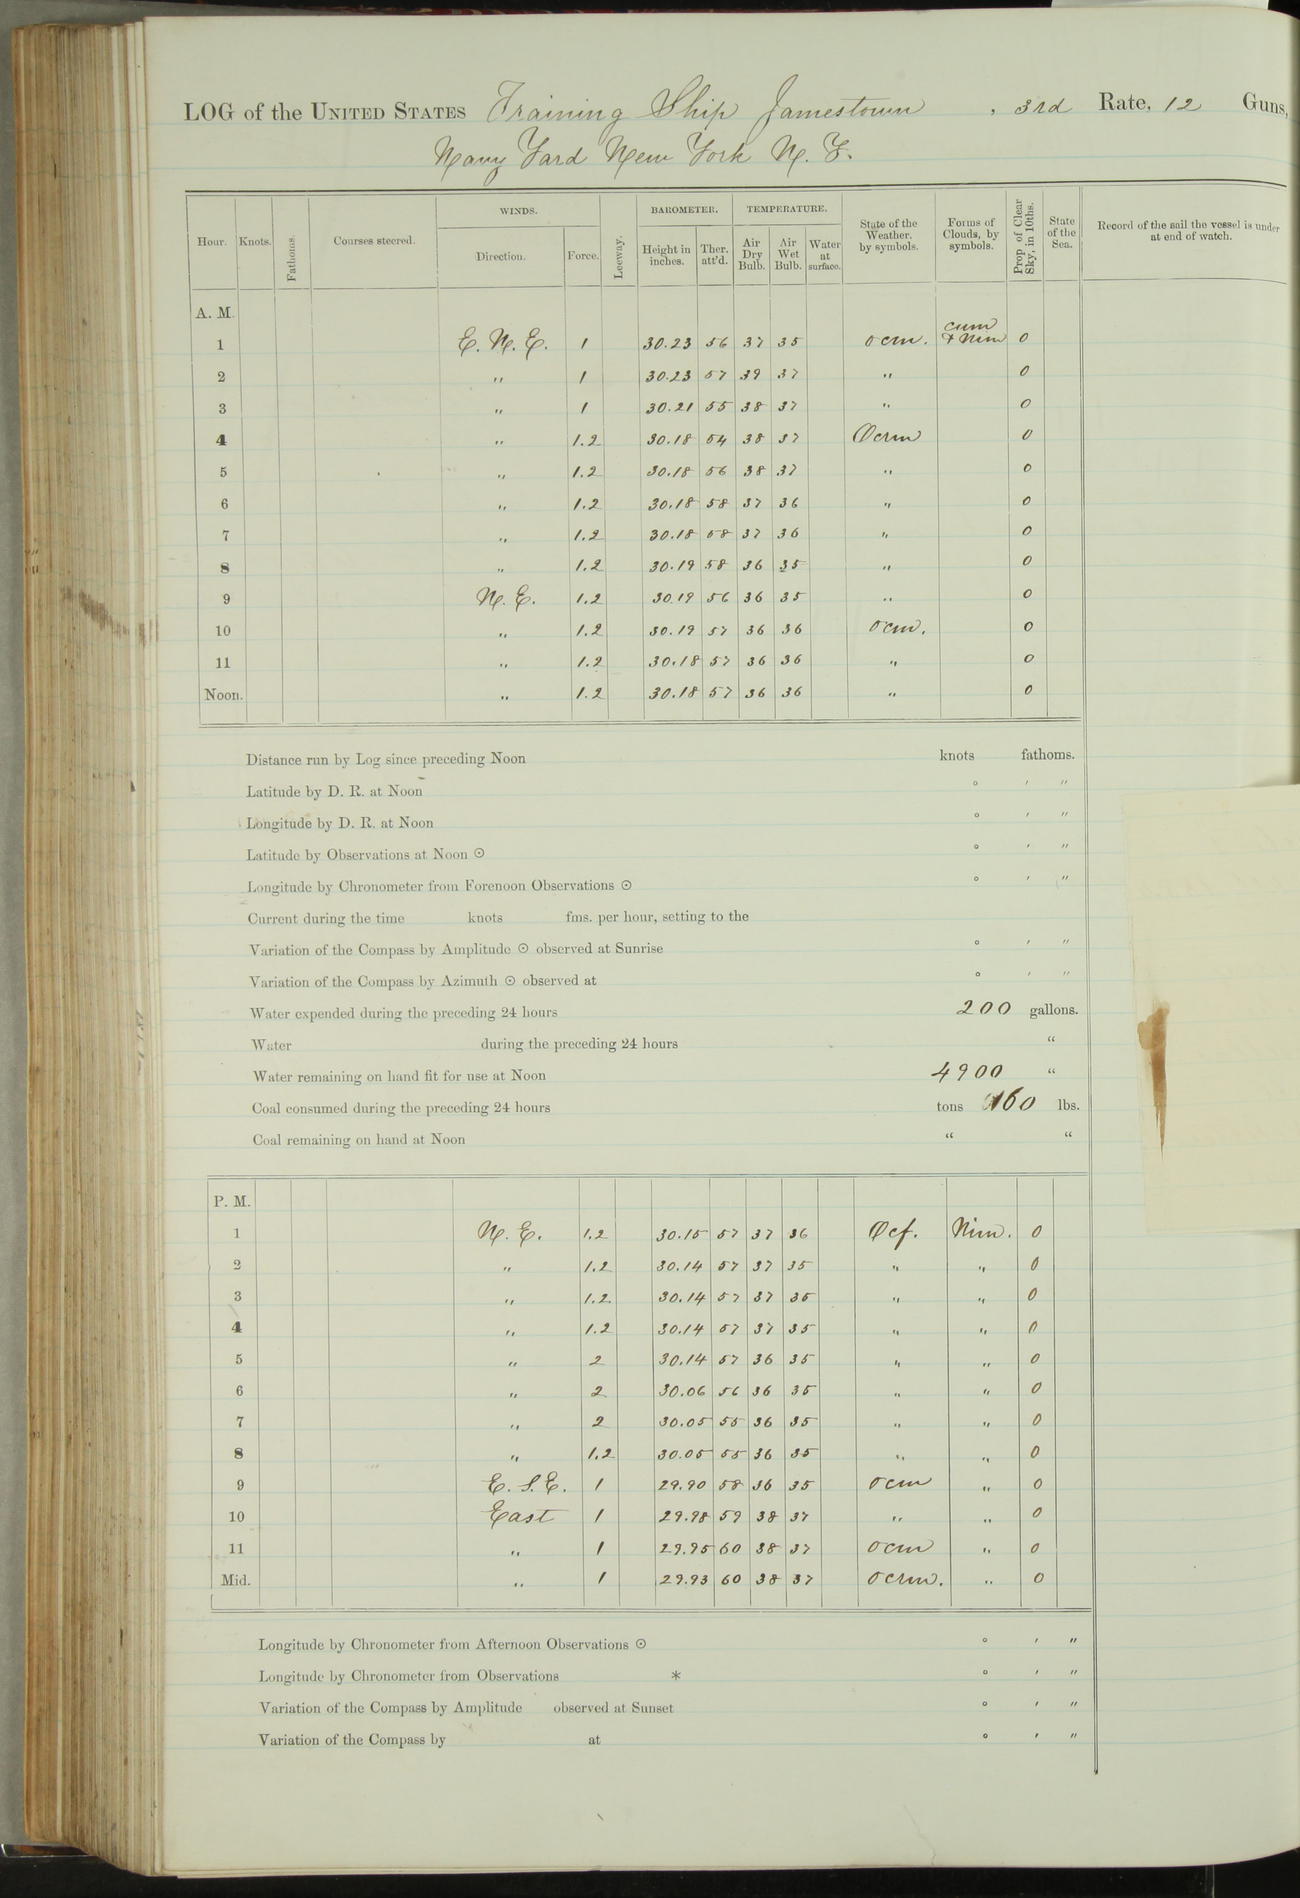 LOG of the UNITED STATES Training Ship Jamestown , 3rd Rate, 12 Guns,
Navy Yard New York N. Y.
Hour. Knots. Fathoms. Courses steered. WINDS. Direction. Force. Leeway. BAROMETER. Height in inches. Ther. att'd. TEMPERATURE. Air Dry Bulb. Air Wet Bulb. Water at surface. State of the Weather, by symbols. Forms of Clouds, by symbols. Prop of Clear Sky, in 10ths. State of the Sea. Record of the sail the vessel is under at end of watch.
A. M.
1 E. N. E. 1 30.23 56 37 35 ocm. cum & Nim 0
2 " 1 30.23 57 39 37 " 0
3 " 1 30.21 55 38 37 " 0
4 " 1.2 30.18 54 38 37 Ocrm 0
5 " 1.2 30.18 56 38 37 " 0
6 " 1.2 30.18 58 37 36 " 0
7 " 1.2 30.18 58 37 36 " 0
8 " 1.2 30.19 58 36 35 " 0
9 N. E. 1.2 30.19 56 36 35 " 0
10 " 1.2 30.19 57 36 36 ocm. 0
11 " 1.2 30.18 57 36 36 " 0
Noon. " 1.2 30.18 57 36 36 " 0
Distance run by Log since preceding Noon knots fathoms.
Latitude by D. R. at Noon ° ′ ″
Longitude by D. R. at Noon ° ′ ″
Latitude by Observations at Noon ⊙ ° ′ ″
Longitude by Chronometer from Forenoon Observations ⊙ ° ′ ″
Current during the time knots fms. per hour, setting to the
Variation of the Compass by Amplitude ⊙ observed at Sunrise ° ′ ″
Variation of the Compass by Azimuth ⊙ observed at ° ′ ″
Water expended during the preceding 24 hours 200 gallons.
Water during the preceding 24 hours "
Water remaining on hand fit for use at Noon 4900 "
Coal consumed during the preceding 24 hours tons 160 lbs.
Coal remaining on hand at Noon " "
P. M.
1 N. E. 1.2 30.15 57 37 36 Ocf. Nim. 0
2 " 1.2 30.14 57 37 35 " " 0
3 " 1.2 30.14 57 37 35 " " 0
4 " 1.2 30.14 57 37 35 " " 0
5 " 2 30.14 57 36 35 " " 0
6 " 2 30.06 56 36 35 " " 0
7 " 2 30.05 55 36 35 " " 0
8 " 1.2 30.05 55 36 35 " " 0
9 E. S. E. 1 29.90 58 36 35 ocm " 0
10 East 1 29.98 59 38 37 " " 0
11 " 1 29.95 60 38 37 ocm " 0
Mid. " 1 29.93 60 38 37 ocrm. " 0
Longitude by Chronometer from Afternoon Observations ⊙ ° ′ ″
Longitude by Chronometer from Observations * ° ′ ″
Variation of the Compass by Amplitude observed at Sunset ° ′ ″
Variation of the Compass by at ° ′ ″